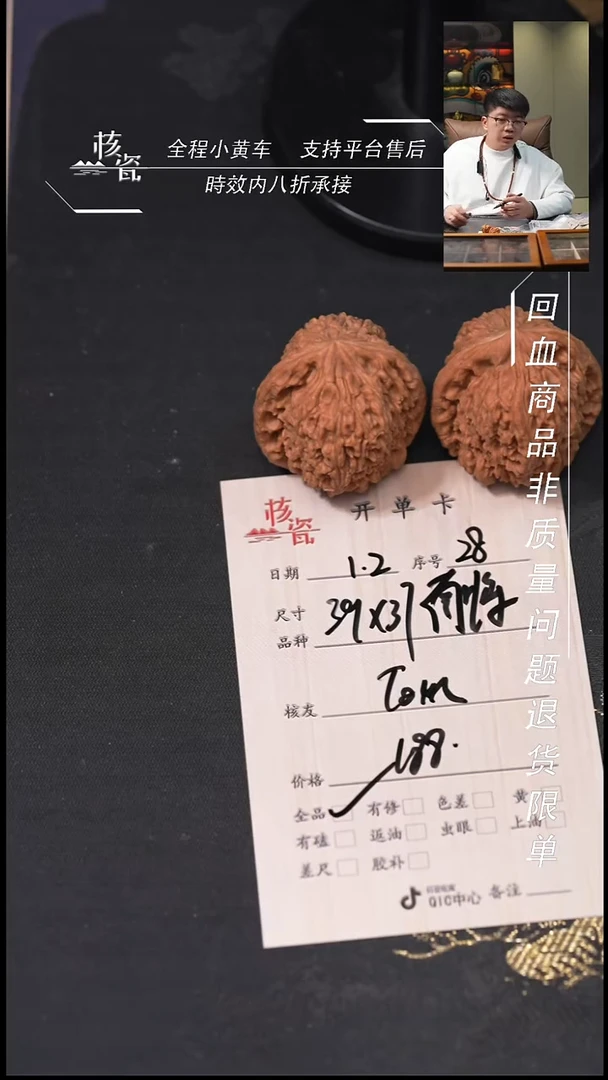 核瓷
全程小黄车 支持平台售后
時效内八折承接
回血商品非质量问题退货限单
核瓷 开单卡
日期 1.2 序号 28
尺寸 39X37
品种
核友 Tom
价格 188.
全品 有修 色差 黄
有磕 返油 虫眼 上油
差尺 胶补
QIC中心 备注